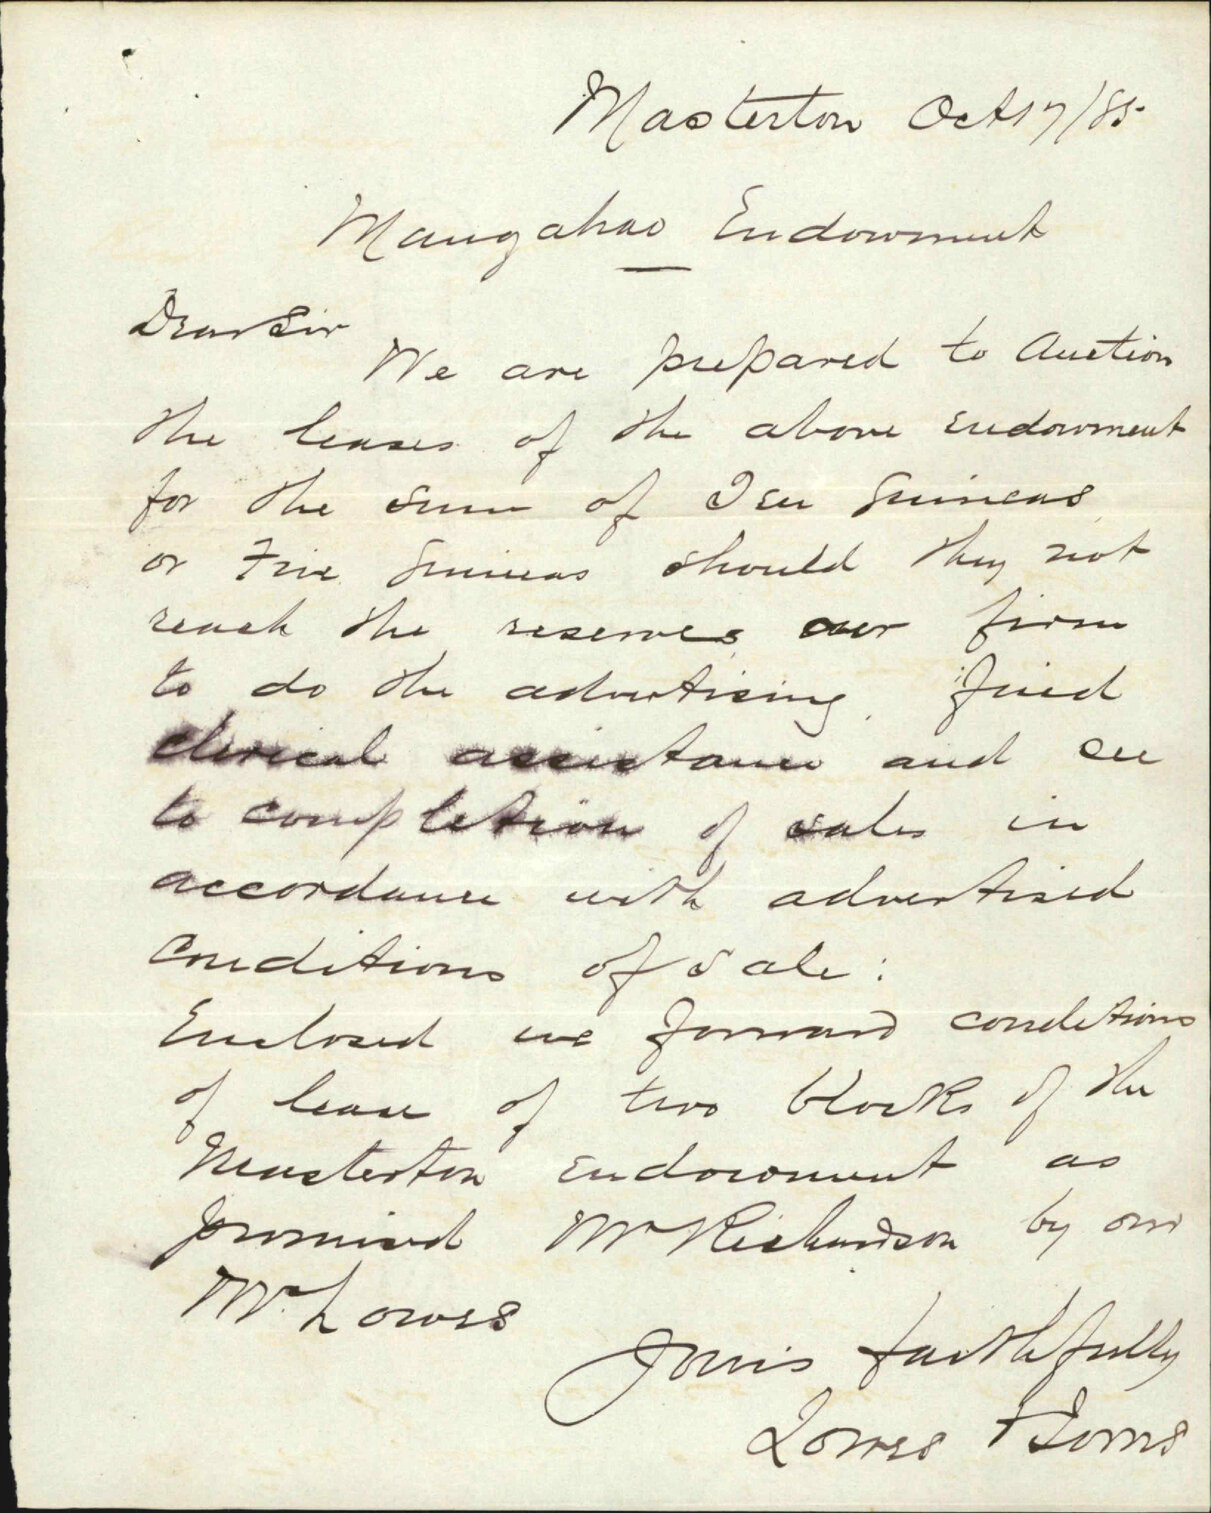 Masterton Oct 17/85
Mangahao Endowment
Dear Sir
We are prepared to Auction
the leases of the above endowment
for the sum of Ten Guineas
or Five Guineas should they not
reach the reserves our firm
to do the advertising, find
clerical assistance and see
to completion of sales in
accordance with advertised
Conditions of Sale:
Enclosed we forward conditions
of lease of two blocks of the
Masterton Endowment as
promised Mr Richardson by our
Mr. Lowes
Yours faithfully
Lowes & Iorns